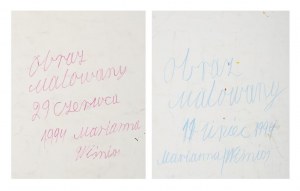 obraz
malowany
29 czerwca
1994 Marianna
Wiśnios
obraz
malowany
11 lipiec
Marianna Wiśnios